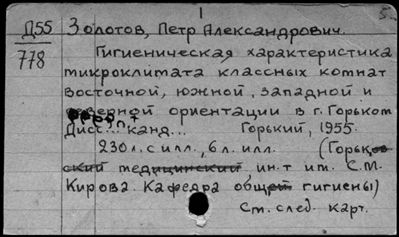 1 5
Д55 Золотов, Петр Александрович.
778 Гигиеническая характеристика
микроклимата классных комнат
восточной, южной, западной и
северной ориентации в г. Горьком
Дисс... канд... Горький, 1955.
230 л. с илл., 6 л. илл. (Горьков
ский медицинский ин-т им. С.М.
Кирова. Кафедра общей гигиены)
См. след. карт.